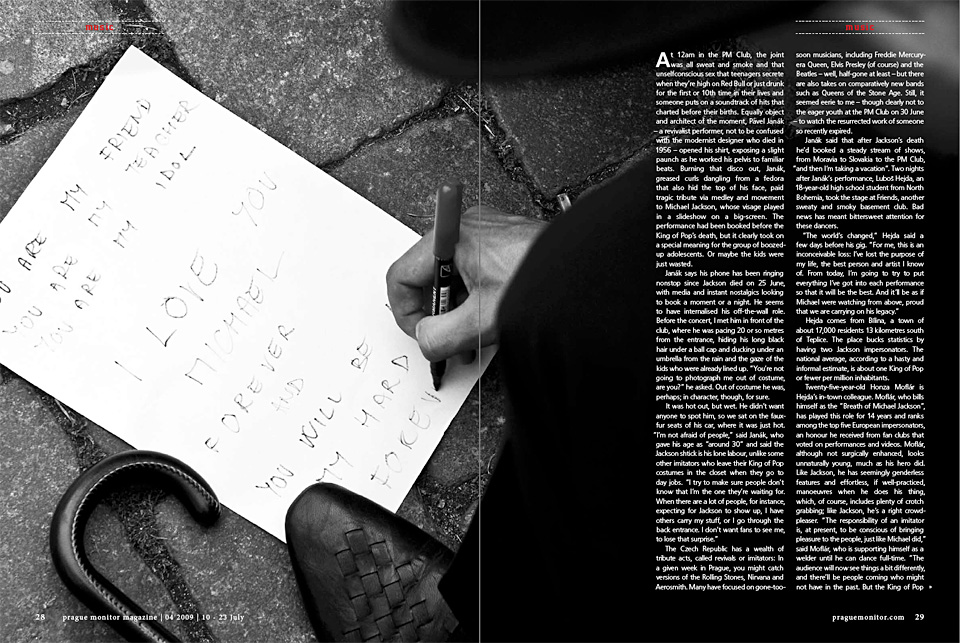 music
YOU ARE MY FRIEND
YOU ARE MY TEACHER
YOU ARE MY IDOL
I LOVE YOU
MICHAEL
FOREVER
AND
YOU WILL BE
MY HARD
FOREV
28 prague monitor magazine | 04 2009 | 10 - 23 July
music
At 12am in the PM Club, the joint
was all sweat and smoke and that
unselfconscious sex that teenagers secrete
when they're high on Red Bull or just drunk
for the first or 10th time in their lives and
someone puts on a soundtrack of hits that
charted before their births. Equally object
and architect of the moment, Pavel Janák
– a revivalist performer, not to be confused
with the modernist designer who died in
1956 – opened his shirt, exposing a slight
paunch as he worked his pelvis to familiar
beats. Burning that disco out, Janák,
greased curls dangling from a fedora
that also hid the top of his face, paid
tragic tribute via medley and movement
to Michael Jackson, whose visage played
in a slideshow on a big-screen. The
performance had been booked before the
King of Pop's death, but it clearly took on
a special meaning for the group of boozed-
up adolescents. Or maybe the kids were
just wasted.
Janák says his phone has been ringing
nonstop since Jackson died on 25 June,
with media and instant nostalgics looking
to book a moment or a night. He seems
to have internalised his off-the-wall role.
Before the concert, I met him in front of the
club, where he was pacing 20 or so metres
from the entrance, hiding his long black
hair under a ball cap and ducking under an
umbrella from the rain and the gaze of the
kids who were already lined up. "You're not
going to photograph me out of costume,
are you?" he asked. Out of costume he was,
perhaps; in character, though, for sure.
It was hot out, but wet. He didn't want
anyone to spot him, so we sat on the faux-
fur seats of his car, where it was just hot.
"I'm not afraid of people," said Janák, who
gave his age as "around 30" and said the
Jackson shtick is his lone labour, unlike some
other imitators who leave their King of Pop
costumes in the closet when they go to
day jobs. "I try to make sure people don't
know that I'm the one they're waiting for.
When there are a lot of people, for instance,
expecting for Jackson to show up, I have
others carry my stuff, or I go through the
back entrance. I don't want fans to see me,
to lose that surprise."
The Czech Republic has a wealth of
tribute acts, called revivals or imitators: In
a given week in Prague, you might catch
versions of the Rolling Stones, Nirvana and
Aerosmith. Many have focused on gone-too-
soon musicians, including Freddie Mercury-
era Queen, Elvis Presley (of course) and the
Beatles – well, half-gone at least – but there
are also takes on comparatively new bands
such as Queens of the Stone Age. Still, it
seemed eerie to me – though clearly not to
the eager youth at the PM Club on 30 June
– to watch the resurrected work of someone
so recently expired.
Janák said that after Jackson's death
he'd booked a steady stream of shows,
from Moravia to Slovakia to the PM Club,
"and then I'm taking a vacation". Two nights
after Janák's performance, Luboš Hejda, an
18-year-old high school student from North
Bohemia, took the stage at Friends, another
sweaty and smoky basement club. Bad
news has meant bittersweet attention for
these dancers.
"The world's changed," Hejda said a
few days before his gig. "For me, this is an
inconceivable loss: I've lost the purpose of
my life, the best person and artist I know
of. From today, I'm going to try to put
everything I've got into each performance
so that it will be the best. And it'll be as if
Michael were watching from above, proud
that we are carrying on his legacy."
Hejda comes from Bílina, a town of
about 17,000 residents 13 kilometres south
of Teplice. The place bucks statistics by
having two Jackson impersonators. The
national average, according to a hasty and
informal estimate, is about one King of Pop
or fewer per million inhabitants.
Twenty-five-year-old Honza Moflár is
Hejda's in-town colleague. Moflár, who bills
himself as the "Breath of Michael Jackson",
has played this role for 14 years and ranks
among the top five European impersonators,
an honour he received from fan clubs that
voted on performances and videos. Moflár,
although not surgically enhanced, looks
unnaturally young, much as his hero did.
Like Jackson, he has seemingly genderless
features and effortless, if well-practiced,
manoeuvres when he does his thing,
which, of course, includes plenty of crotch
grabbing; like Jackson, he's a right crowd-
pleaser. "The responsibility of an imitator
is, at present, to be conscious of bringing
pleasure to the people, just like Michael did,"
said Moflár, who is supporting himself as a
welder until he can dance full-time. "The
audience will now see things a bit differently,
and there'll be people coming who might
not have in the past. But the King of Pop »
praguemonitor.com 29